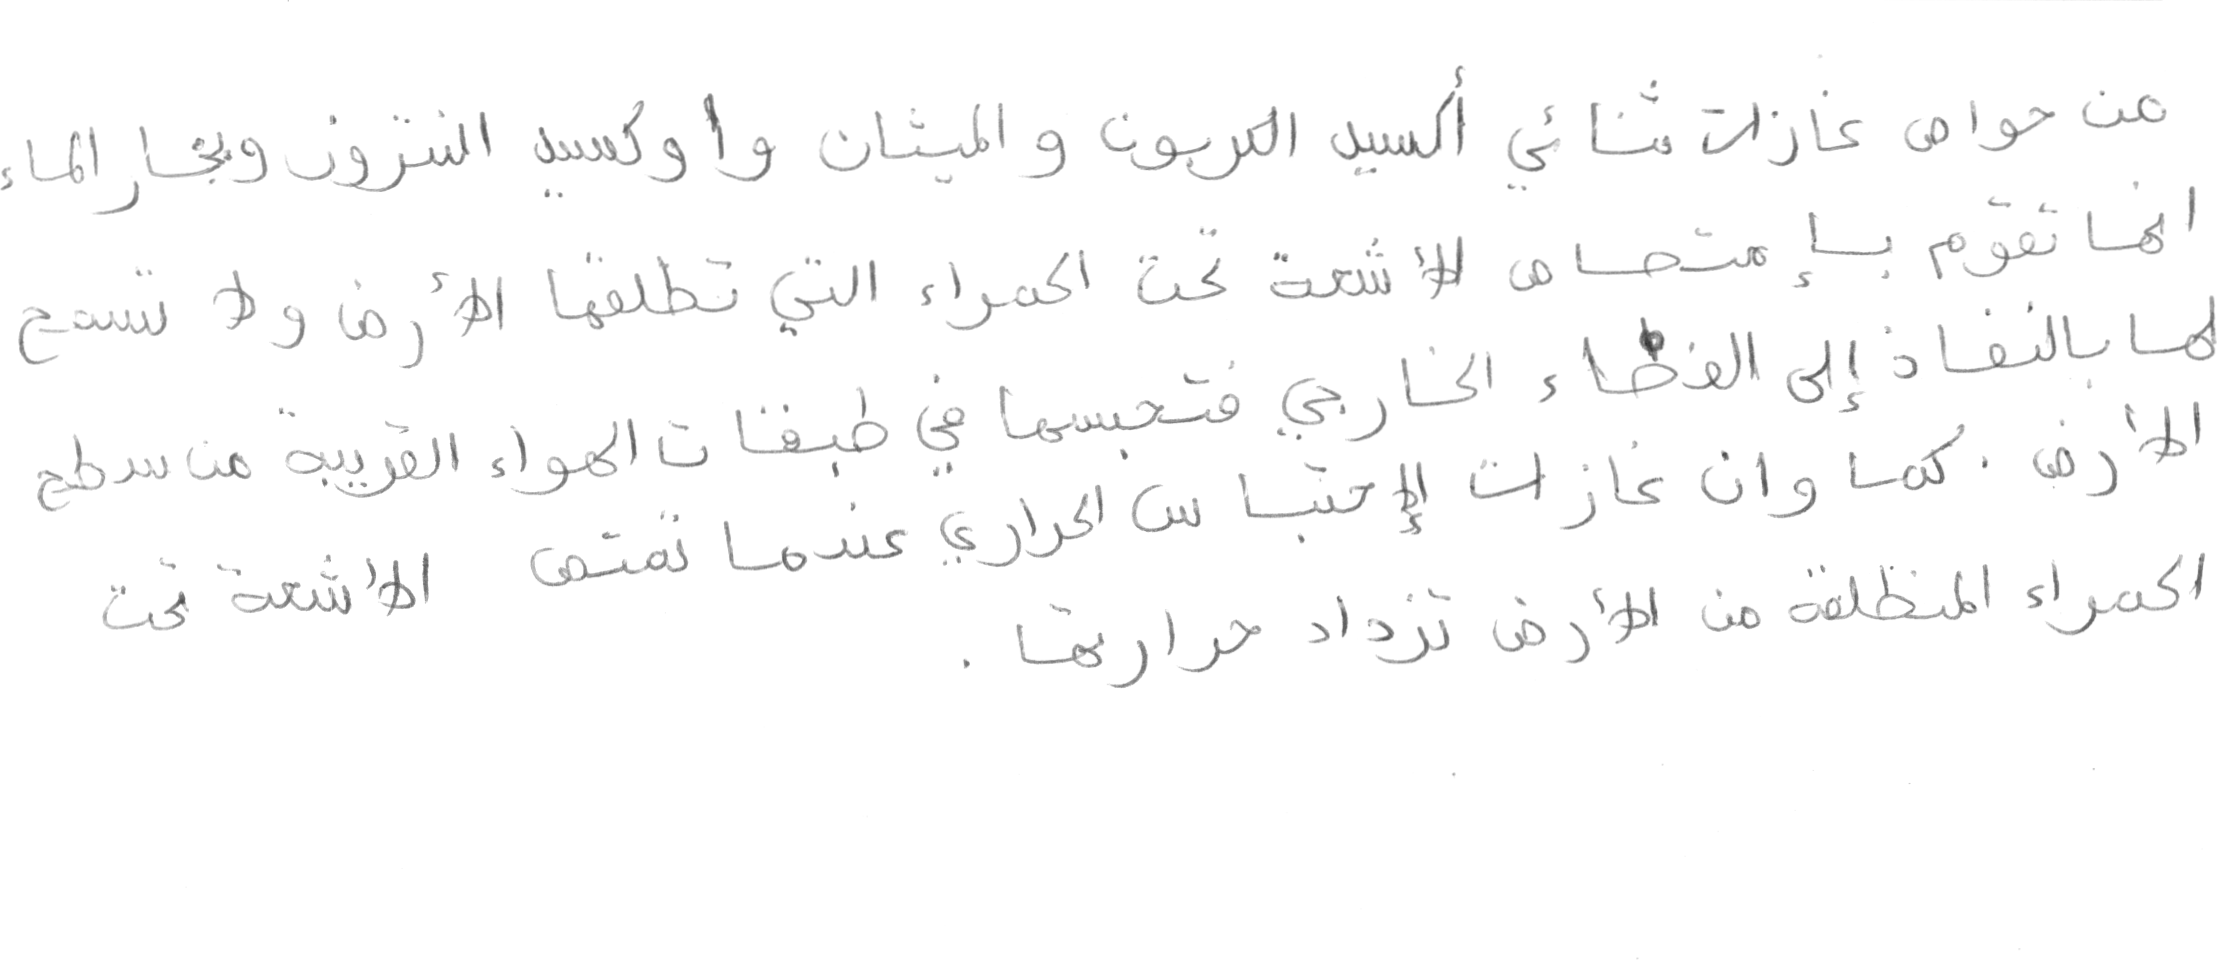 من خواص غازات ثنائي أكسيد الكربون و الميثان وأوكسيد النتروز وبخار الماء
انها تقوم بإمتصاص الأشعة تحت الحمراء التي تطلقها الأرض ولا تسمح
لها بالنفاذ إلى الفضاء الخارجي فتحبسها في طبقات الهواء القريبة من سطح
الأرض . كما وان غازات الإحتباس الحراري عندما تمتص الأشعة تحت
الحمراء المنطلقة من الأرض تزداد حرارتها .